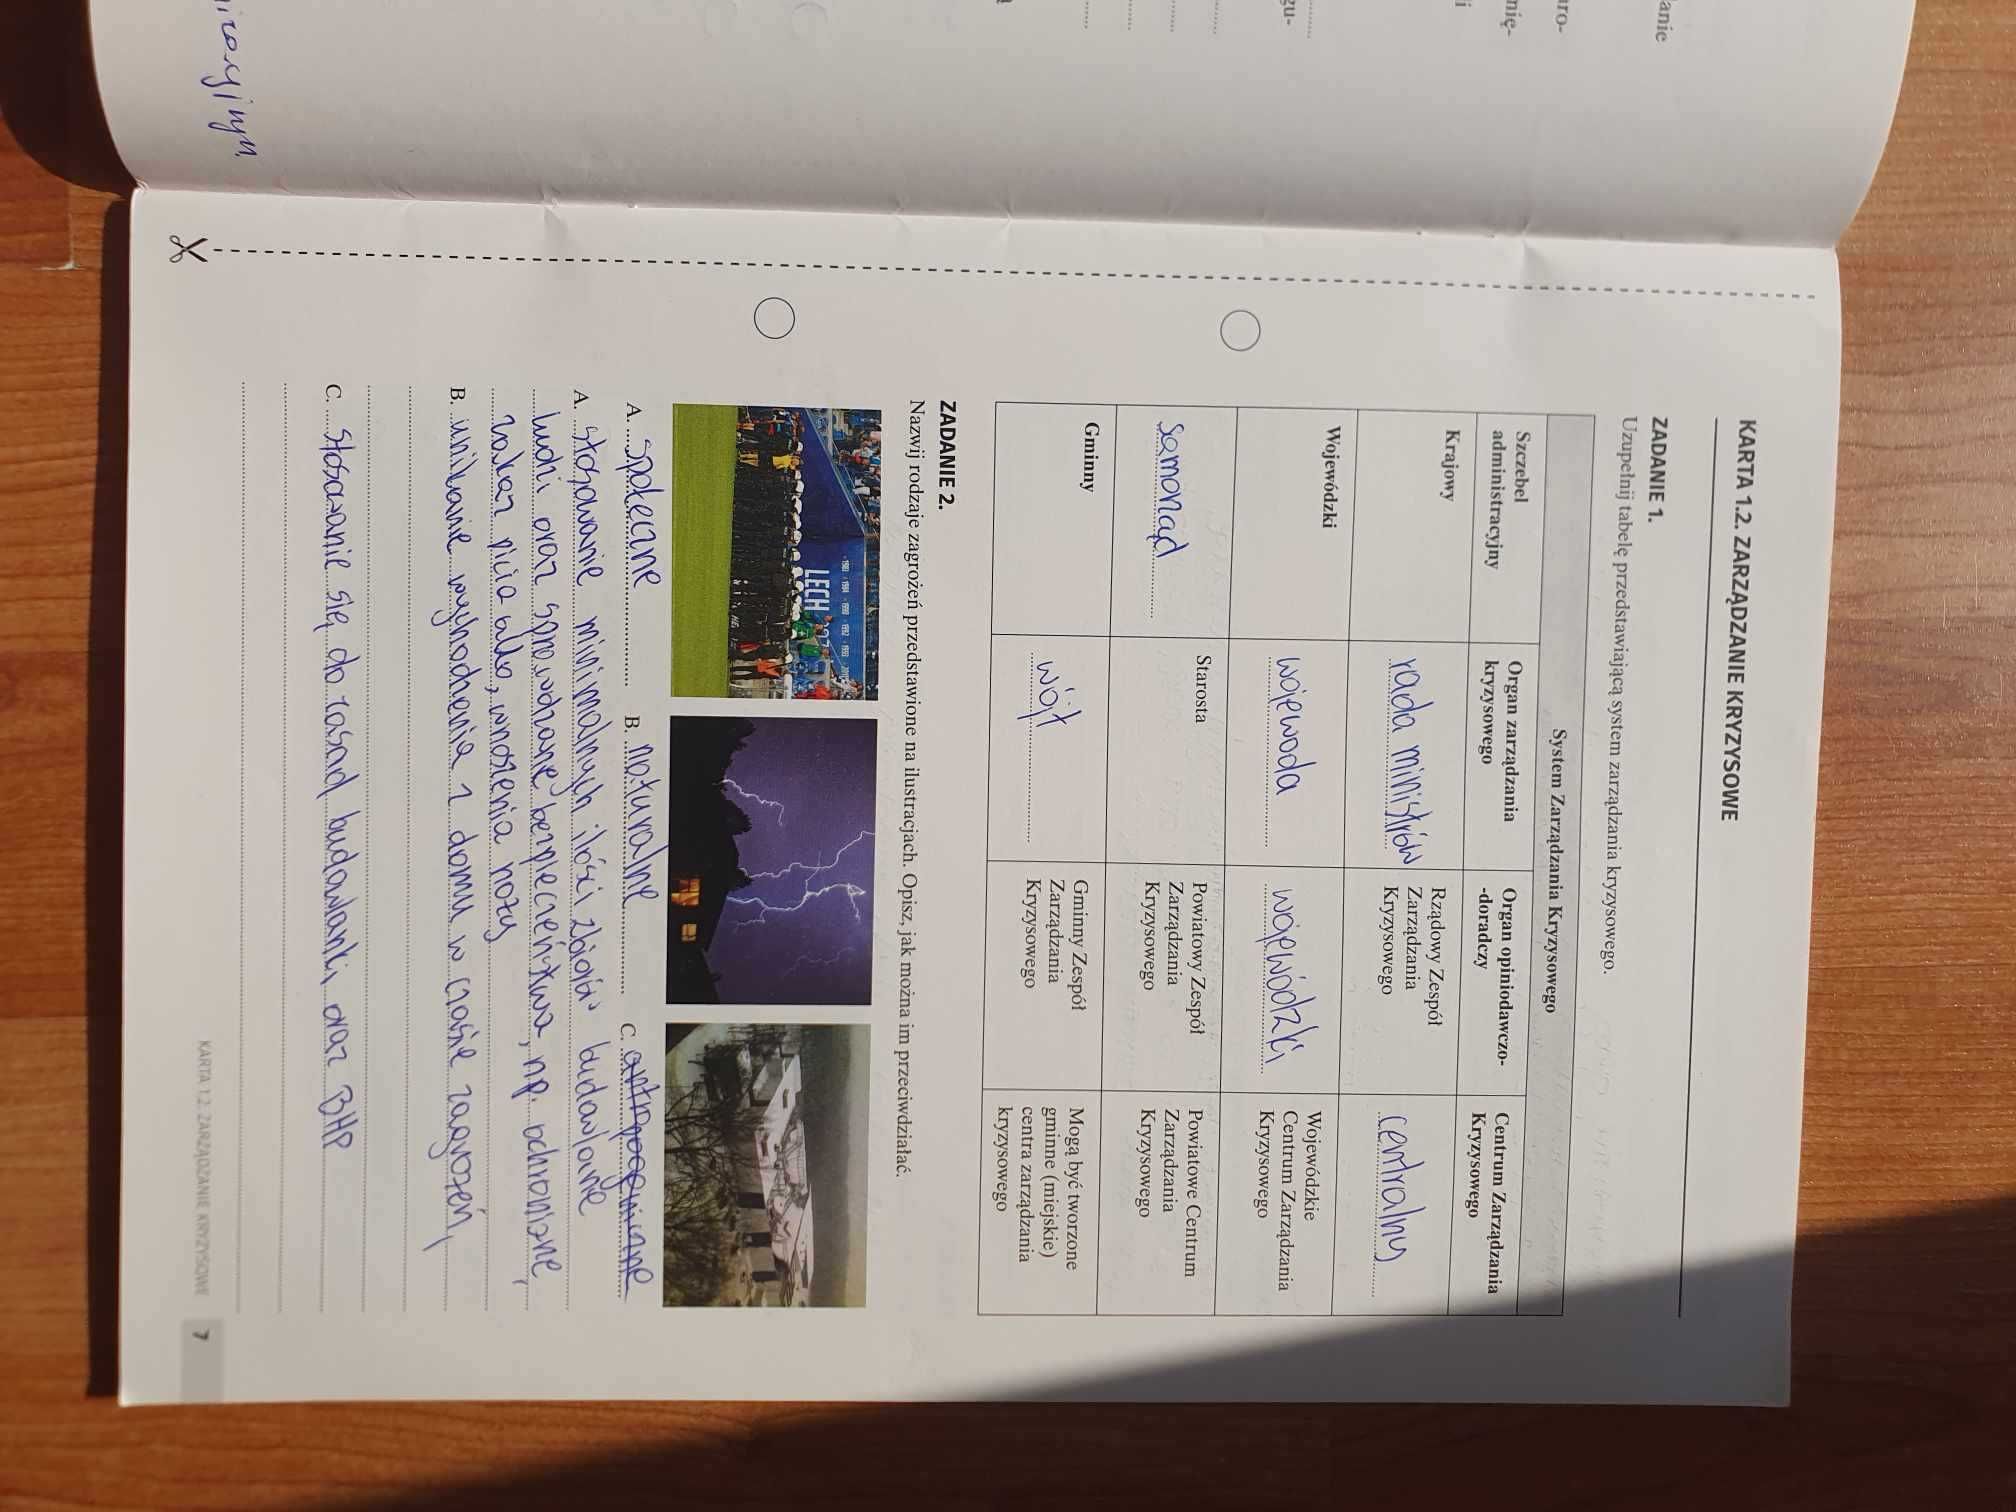 anie
ro-
nię-
i
gu-
icacyjnym
KARTA 1.2. ZARZĄDZANIE KRYZYSOWE
ZADANIE 1.
Uzupełnij tabelę przedstawiającą system zarządzania kryzysowego.
System Zarządzania Kryzysowego
Szczebel administracyjny
Organ zarządzania kryzysowego
Organ opiniodawczo-doradczy
Centrum Zarządzania Kryzysowego
Krajowy
rada ministrów
Rządowy Zespół Zarządzania Kryzysowego
centralny
Wojewódzki
wojewoda
wojewódzki
Wojewódzkie Centrum Zarządzania Kryzysowego
samorząd
Starosta
Powiatowy Zespół Zarządzania Kryzysowego
Powiatowe Centrum Zarządzania Kryzysowego
Gminny
wójt
Gminny Zespół Zarządzania Kryzysowego
Mogą być tworzone gminne (miejskie) centra zarządzania kryzysowego
ZADANIE 2.
Nazwij rodzaje zagrożeń przedstawione na ilustracjach. Opisz, jak można im przeciwdziałać.
LECH
A. społeczne
B. naturalne
C.
A. stosowanie minimalnych ilości zbiorów
ludzi oraz sprawdzanie bezpieczeństwa, np. ochroniarze,
zakaz picia alko, wnoszenia noży
B. unikanie wychodzenia z domu w czasie zagrożeń,
C. stosowanie się do zasad budowlanki oraz BHP
KARTA 1.2. ZARZĄDZANIE KRYZYSOWE
7